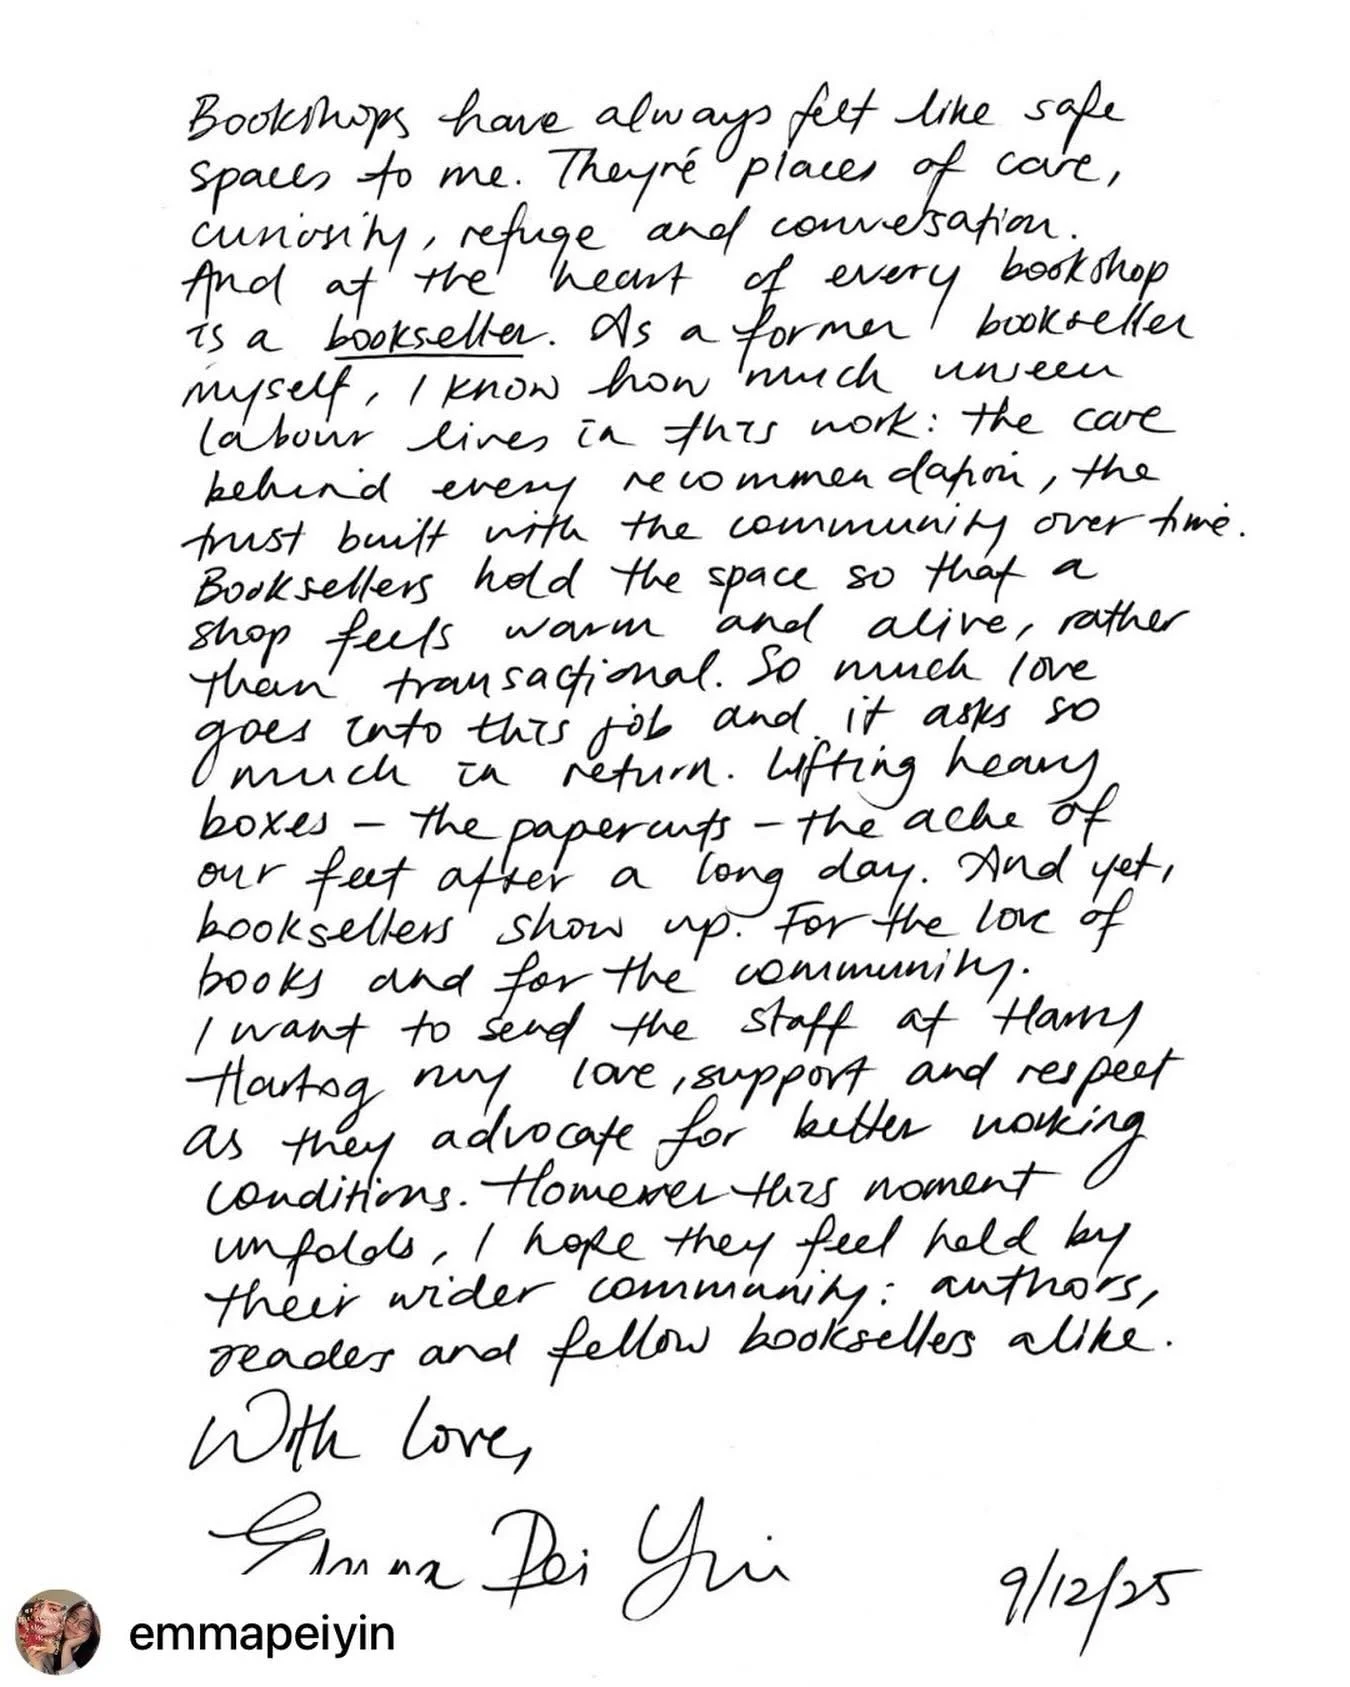 Bookshops have always felt like safe
spaces to me. They're places of care,
curiosity, refuge and conversation.
And at the heart of every bookshop
is a bookseller. As a former bookseller
myself, I know how much unseen
labour lives in this work: the care
behind every recommendation, the
trust built with the community over time.
Booksellers hold the space so that a
shop feels warm and alive, rather
than transactional. So much love
goes into this job and it asks so
much in return. Lifting heavy
boxes – the papercuts – the ache of
our feet after a long day. And yet,
booksellers show up. For the love of
books and for the community.
I want to send the staff at Harry
Hartog my love, support and respect
as they advocate for better working
conditions. However this moment
unfolds, I hope they feel held by
their wider community: authors,
readers and fellow booksellers alike.
With love,
Emma Pei Yin
9/12/25
emmapeiyin